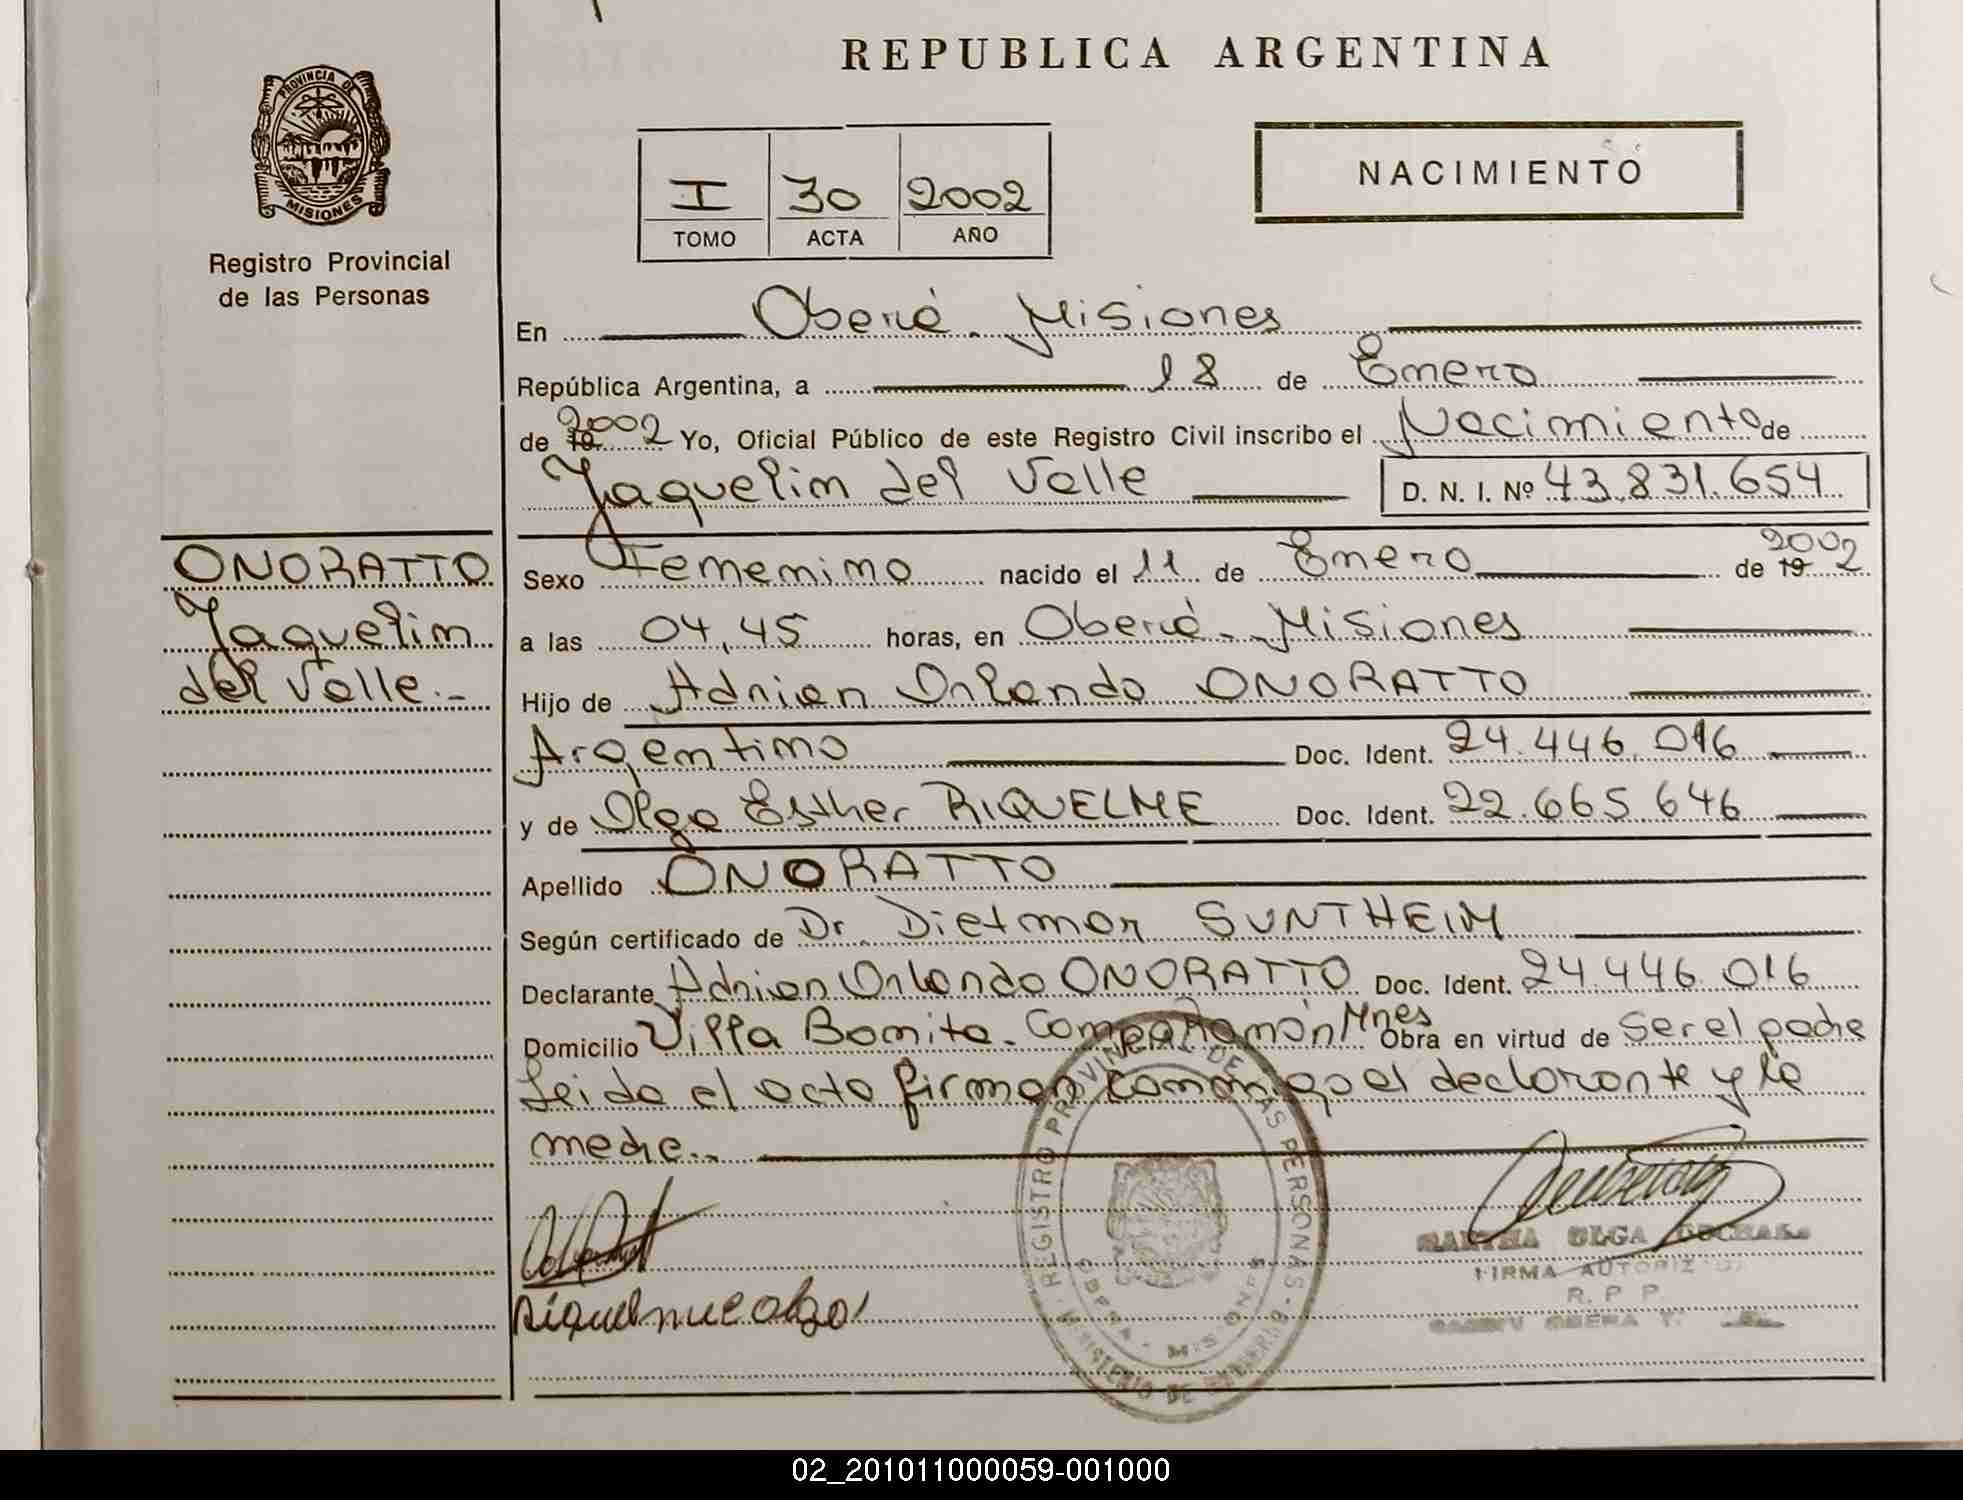 REPUBLICA ARGENTINA
PROVINCIA DE
MISIONES
Registro Provincial
de las Personas
I 30 2002
TOMO ACTA AÑO
NACIMIENTO
En Oberá. Misiones
República Argentina, a 18 de Enero
de 19 2002 Yo, Oficial Público de este Registro Civil inscribo el Nacimiento de
Jaquelin del Valle D. N. I. Nº 43.831.654
ONORATTO
Jaquelin
del Valle.-
Sexo Femenino nacido el 11 de Enero de 19 2002
a las 04,45 horas, en Oberá. Misiones
Hijo de Adrian Orlando ONORATTO
Argentino Doc. Ident. 24.446.016
y de Olga Esther RIQUELME Doc. Ident. 22.665.646
Apellido ONORATTO
Según certificado de Dr. Dietmar SUNTHEIM
Declarante Adrian Orlando ONORATTO Doc. Ident. 24.446.016
Domicilio Villa Bonita. Mnes Obra en virtud de ser el padre
Leida el acta firman conmigo el declarante y la
madre.
REGISTRO PROVINCIAL DE LAS PERSONAS
MINISTERIO DE GOBIERNO
OBERA - MISIONES
OLGA
FIRMA AUTORIZADA
R. P. P.
02_201011000059-001000